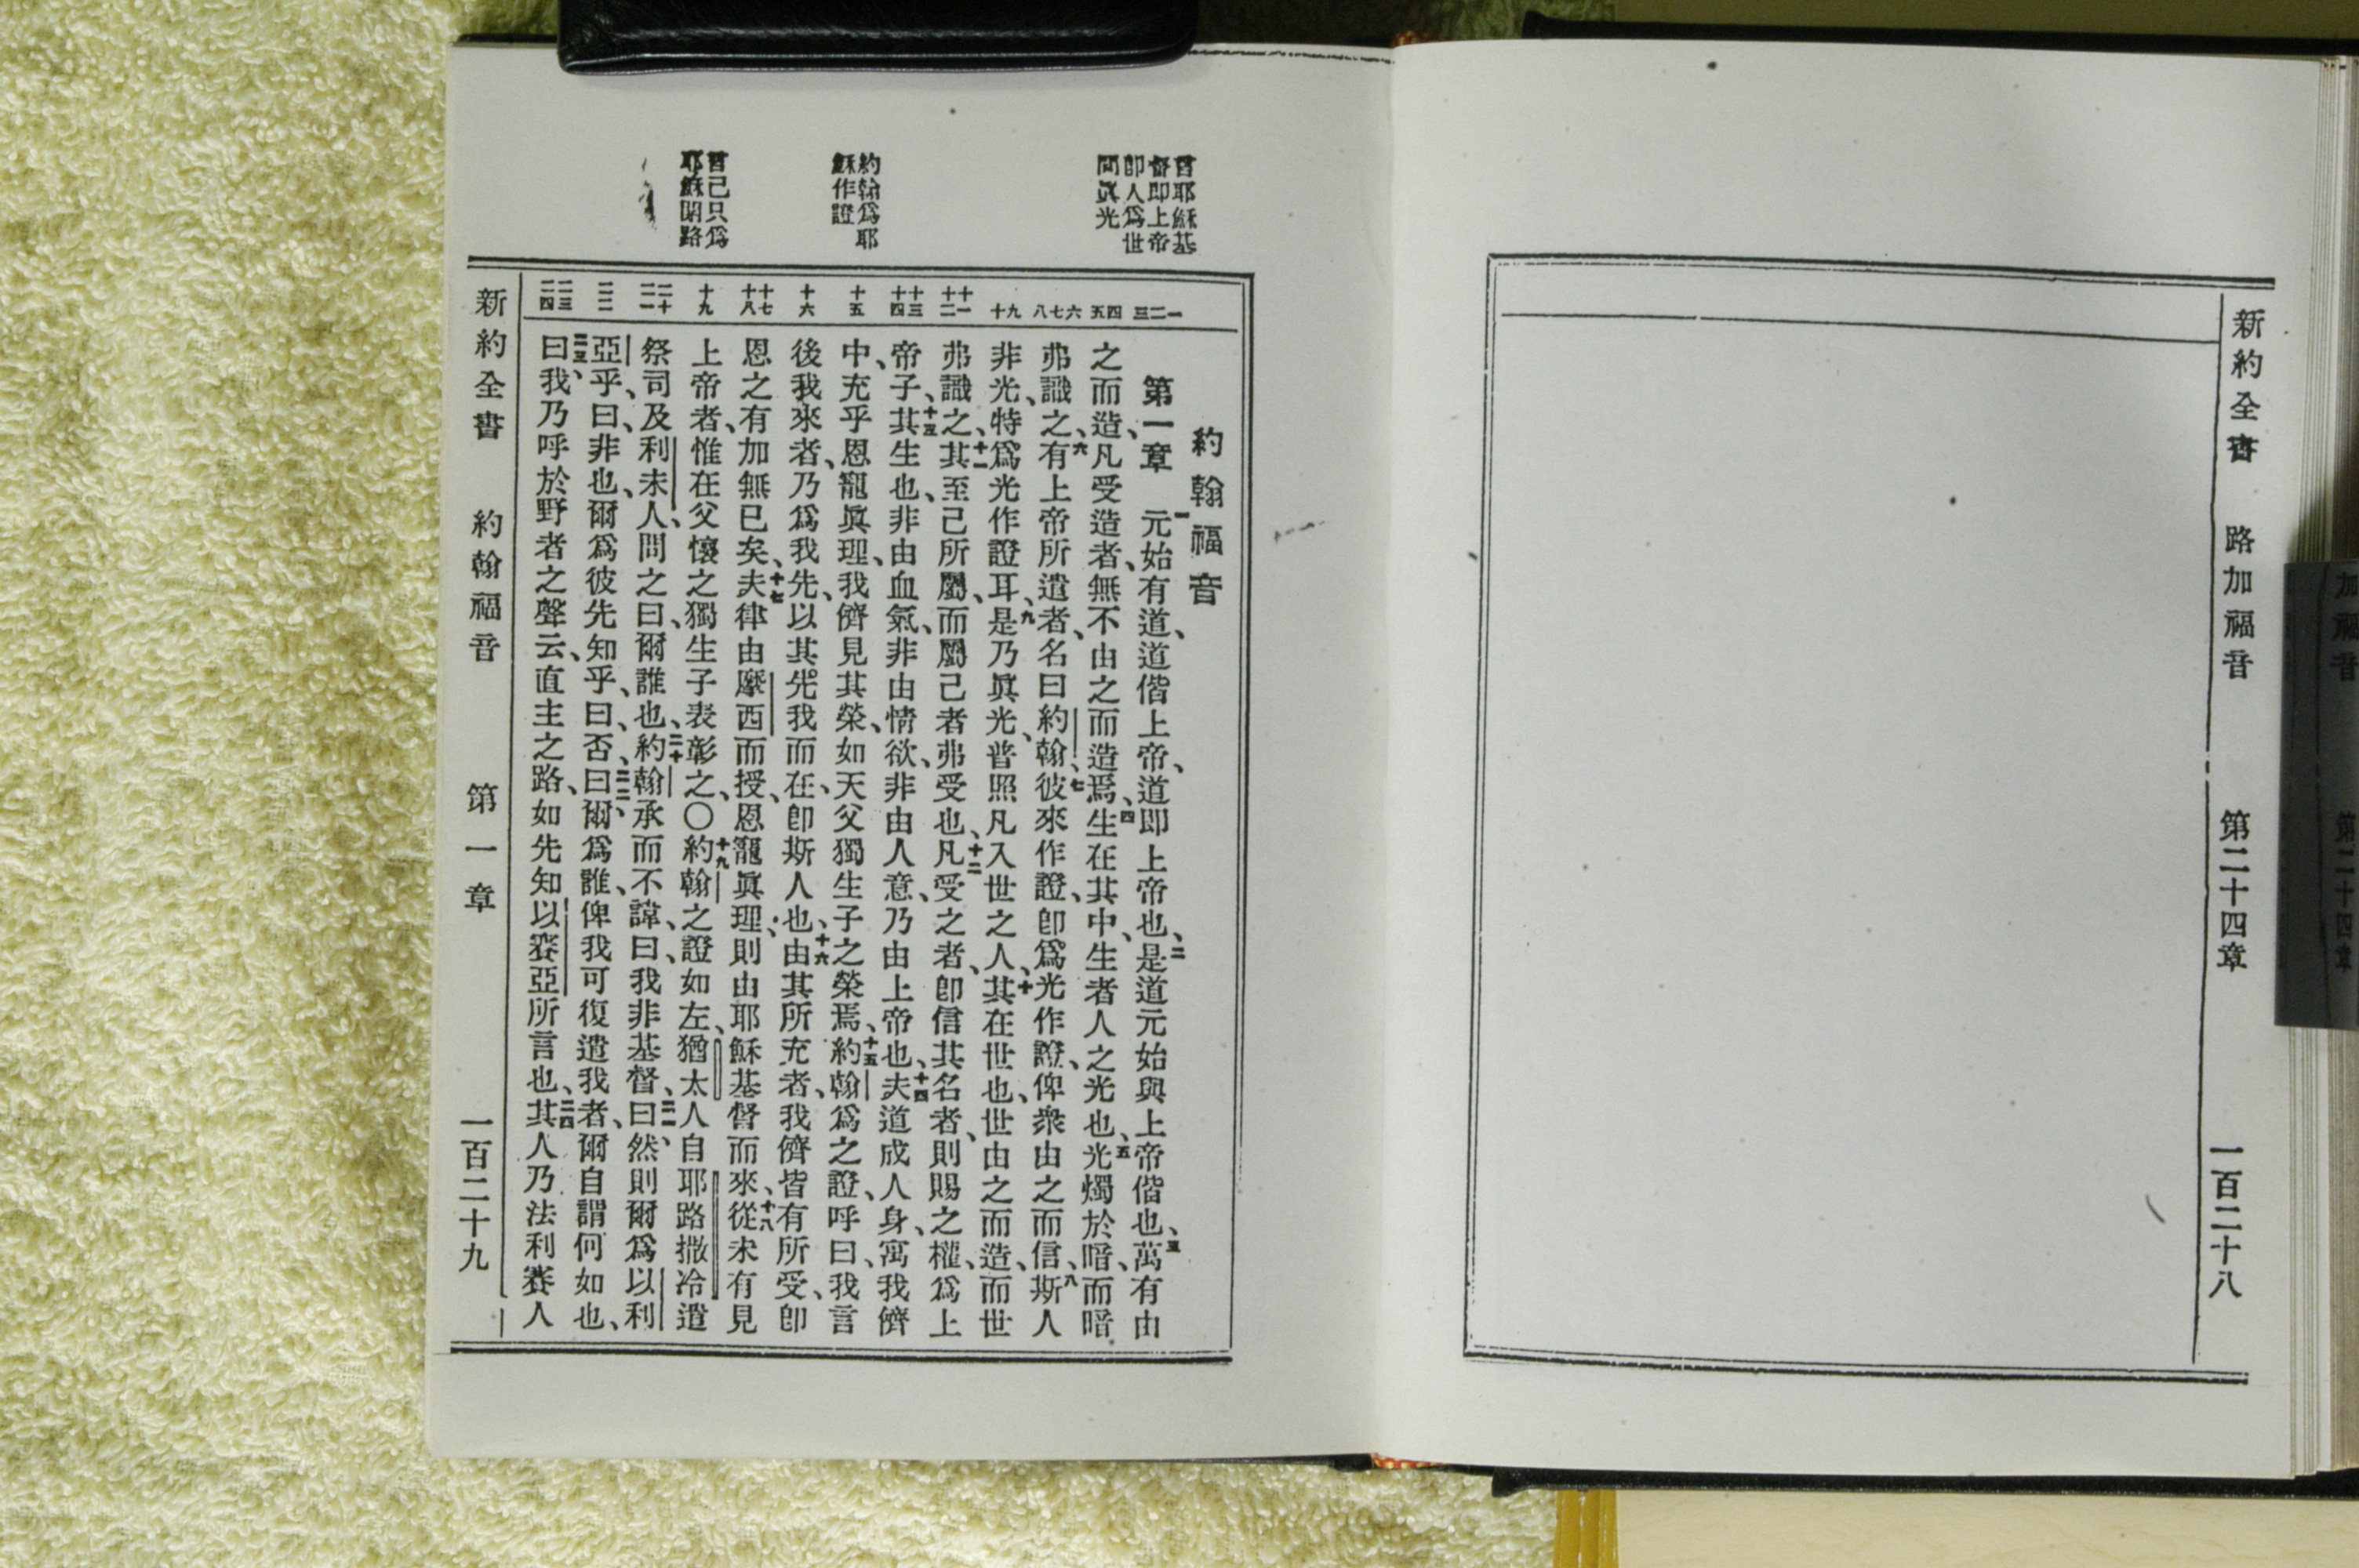 新約全書 路加福音 第二十四章 一百二十八
言耶穌基
督即上帝
即人爲世
間眞光
約翰爲耶
穌作證
言己只爲
耶穌開路
一二三
四五
六七八
九十
十一
十二
十三
十四
十五
十六
十七
十八
十九
二十
二一
二二
二三
二四
約翰福音
第一章 一元始有道、道偕上帝、道即上帝也、二是道元始與上帝偕也、三萬有由
之而造、凡受造者、無不由之而造焉、四生在其中、生者人之光也、五光燭於暗、而暗
弗識之、六有上帝所遣者、名曰約翰、七彼來作證、卽爲光作證、俾衆由之而信、八斯人
非光、特爲光作證耳、九是乃眞光、普照凡入世之人、十其在世也、世由之而造、而世
弗識之、十一其至己所屬、而屬己者弗受也、十二凡受之者、卽信其名者、則賜之權、爲上
帝子、十三其生也、非由血氣、非由情欲、非由人意、乃由上帝也、十四夫道成人身、寓我儕
中、充乎恩寵眞理、我儕見其榮、如天父獨生子之榮焉、十五約翰爲之證、呼曰、我言
後我來者、乃爲我先、以其先我而在、卽斯人也、十六由其所充者、我儕皆有所受、卽
恩之有加無已矣、十七夫律由摩西而授、恩寵眞理、則由耶穌基督而來、十八從未有見
上帝者、惟在父懷之獨生子表彰之、〇十九約翰之證如左、猶太人自耶路撒冷遣
祭司及利未人、問之曰、爾誰也、二十約翰承而不諱、曰、我非基督、二一曰、然則爾爲以利
亞乎、曰、非也、爾爲彼先知乎、曰、否、二二曰、爾爲誰、俾我可復遣我者、爾自謂何如也、
二三曰、我乃呼於野者之聲云、直主之路、如先知以賽亞所言也、二四其人乃法利賽人
新約全書 約翰福音 第一章 一百二十九